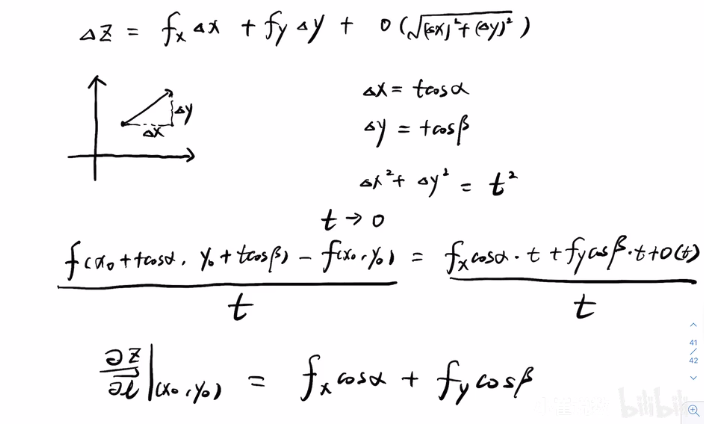 Δz = fx Δx + fy Δy + o(√(Δx)²+(Δy)²)
Δy
Δx
Δx = tcosα
Δy = tcosβ
Δx² + Δy² = t²
t → 0
f(x₀+tcosα, y₀+tcosβ) − f(x₀,y₀) / t = fx cosα·t + fy cosβ·t + o(t) / t
∂z/∂l |(x₀,y₀) = fx cosα + fy cosβ
41
/
42
bilibili